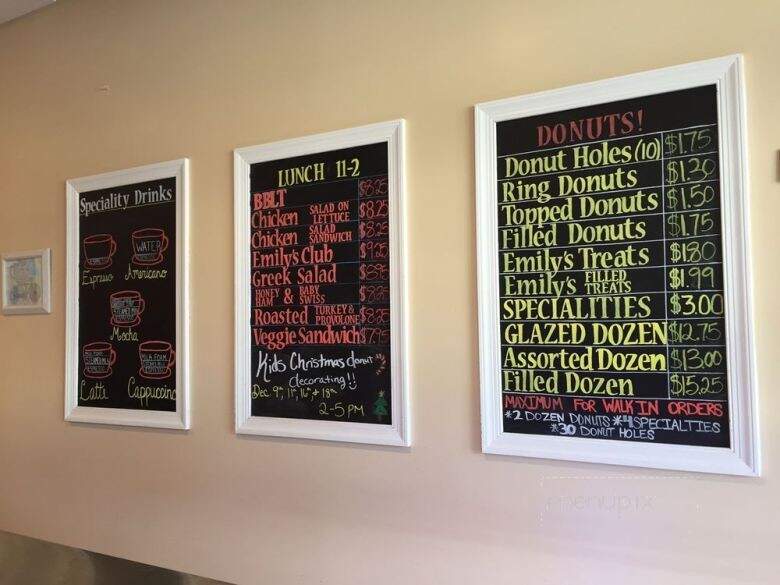 Speciality Drinks
WATER
Espresso Americano
Mocha
MILK FOAM
Latte Cappuccino
LUNCH 11-2
BBLT $8.25
Chicken SALAD ON LETTUCE $8.25
Chicken SALAD SANDWICH $8.25
Emily's Club $9.25
Greek Salad
HONEY HAM & BABY SWISS
Roasted TURKEY & PROVOLONE $8.25
Veggie Sandwich
Kids Christmas donut
decorating!!
Dec 9th, 11th, 16th, + 18th
2-5 PM
DONUTS!
Donut Holes (10) $1.75
Ring Donuts $1.30
Topped Donuts $1.50
Filled Donuts $1.75
Emily's Treats $1.80
Emily's FILLED TREATS $1.99
SPECIALITIES $3.00
GLAZED DOZEN $12.75
Assorted Dozen $13.00
Filled Dozen $15.25
MAXIMUM FOR WALK IN ORDERS
*2 DOZEN DONUTS *4 SPECIALTIES
*30 DONUT HOLES
menupix